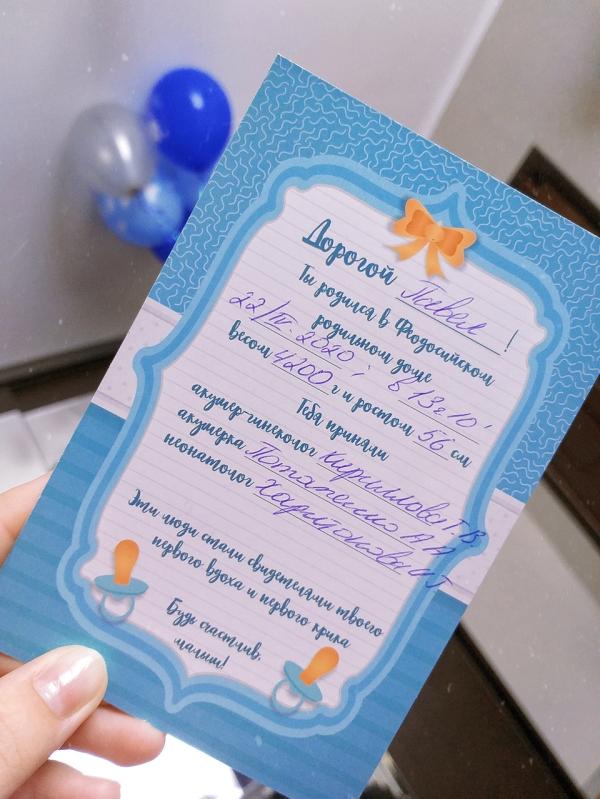 Дорогой Павел!
Ты родился в Феодосийском
родильном доме
22/IV. 2020г в 13ч 10'
весом 4200 г и ростом 56 см
Тебя приняли
акушер-гинеколог Кириллова Т В
акушерка Потапенко А А
неонатолог Харитонова
Эти люди стали свидетелями твоего
первого вдоха и первого крика
Будь счастлив,
малыш!